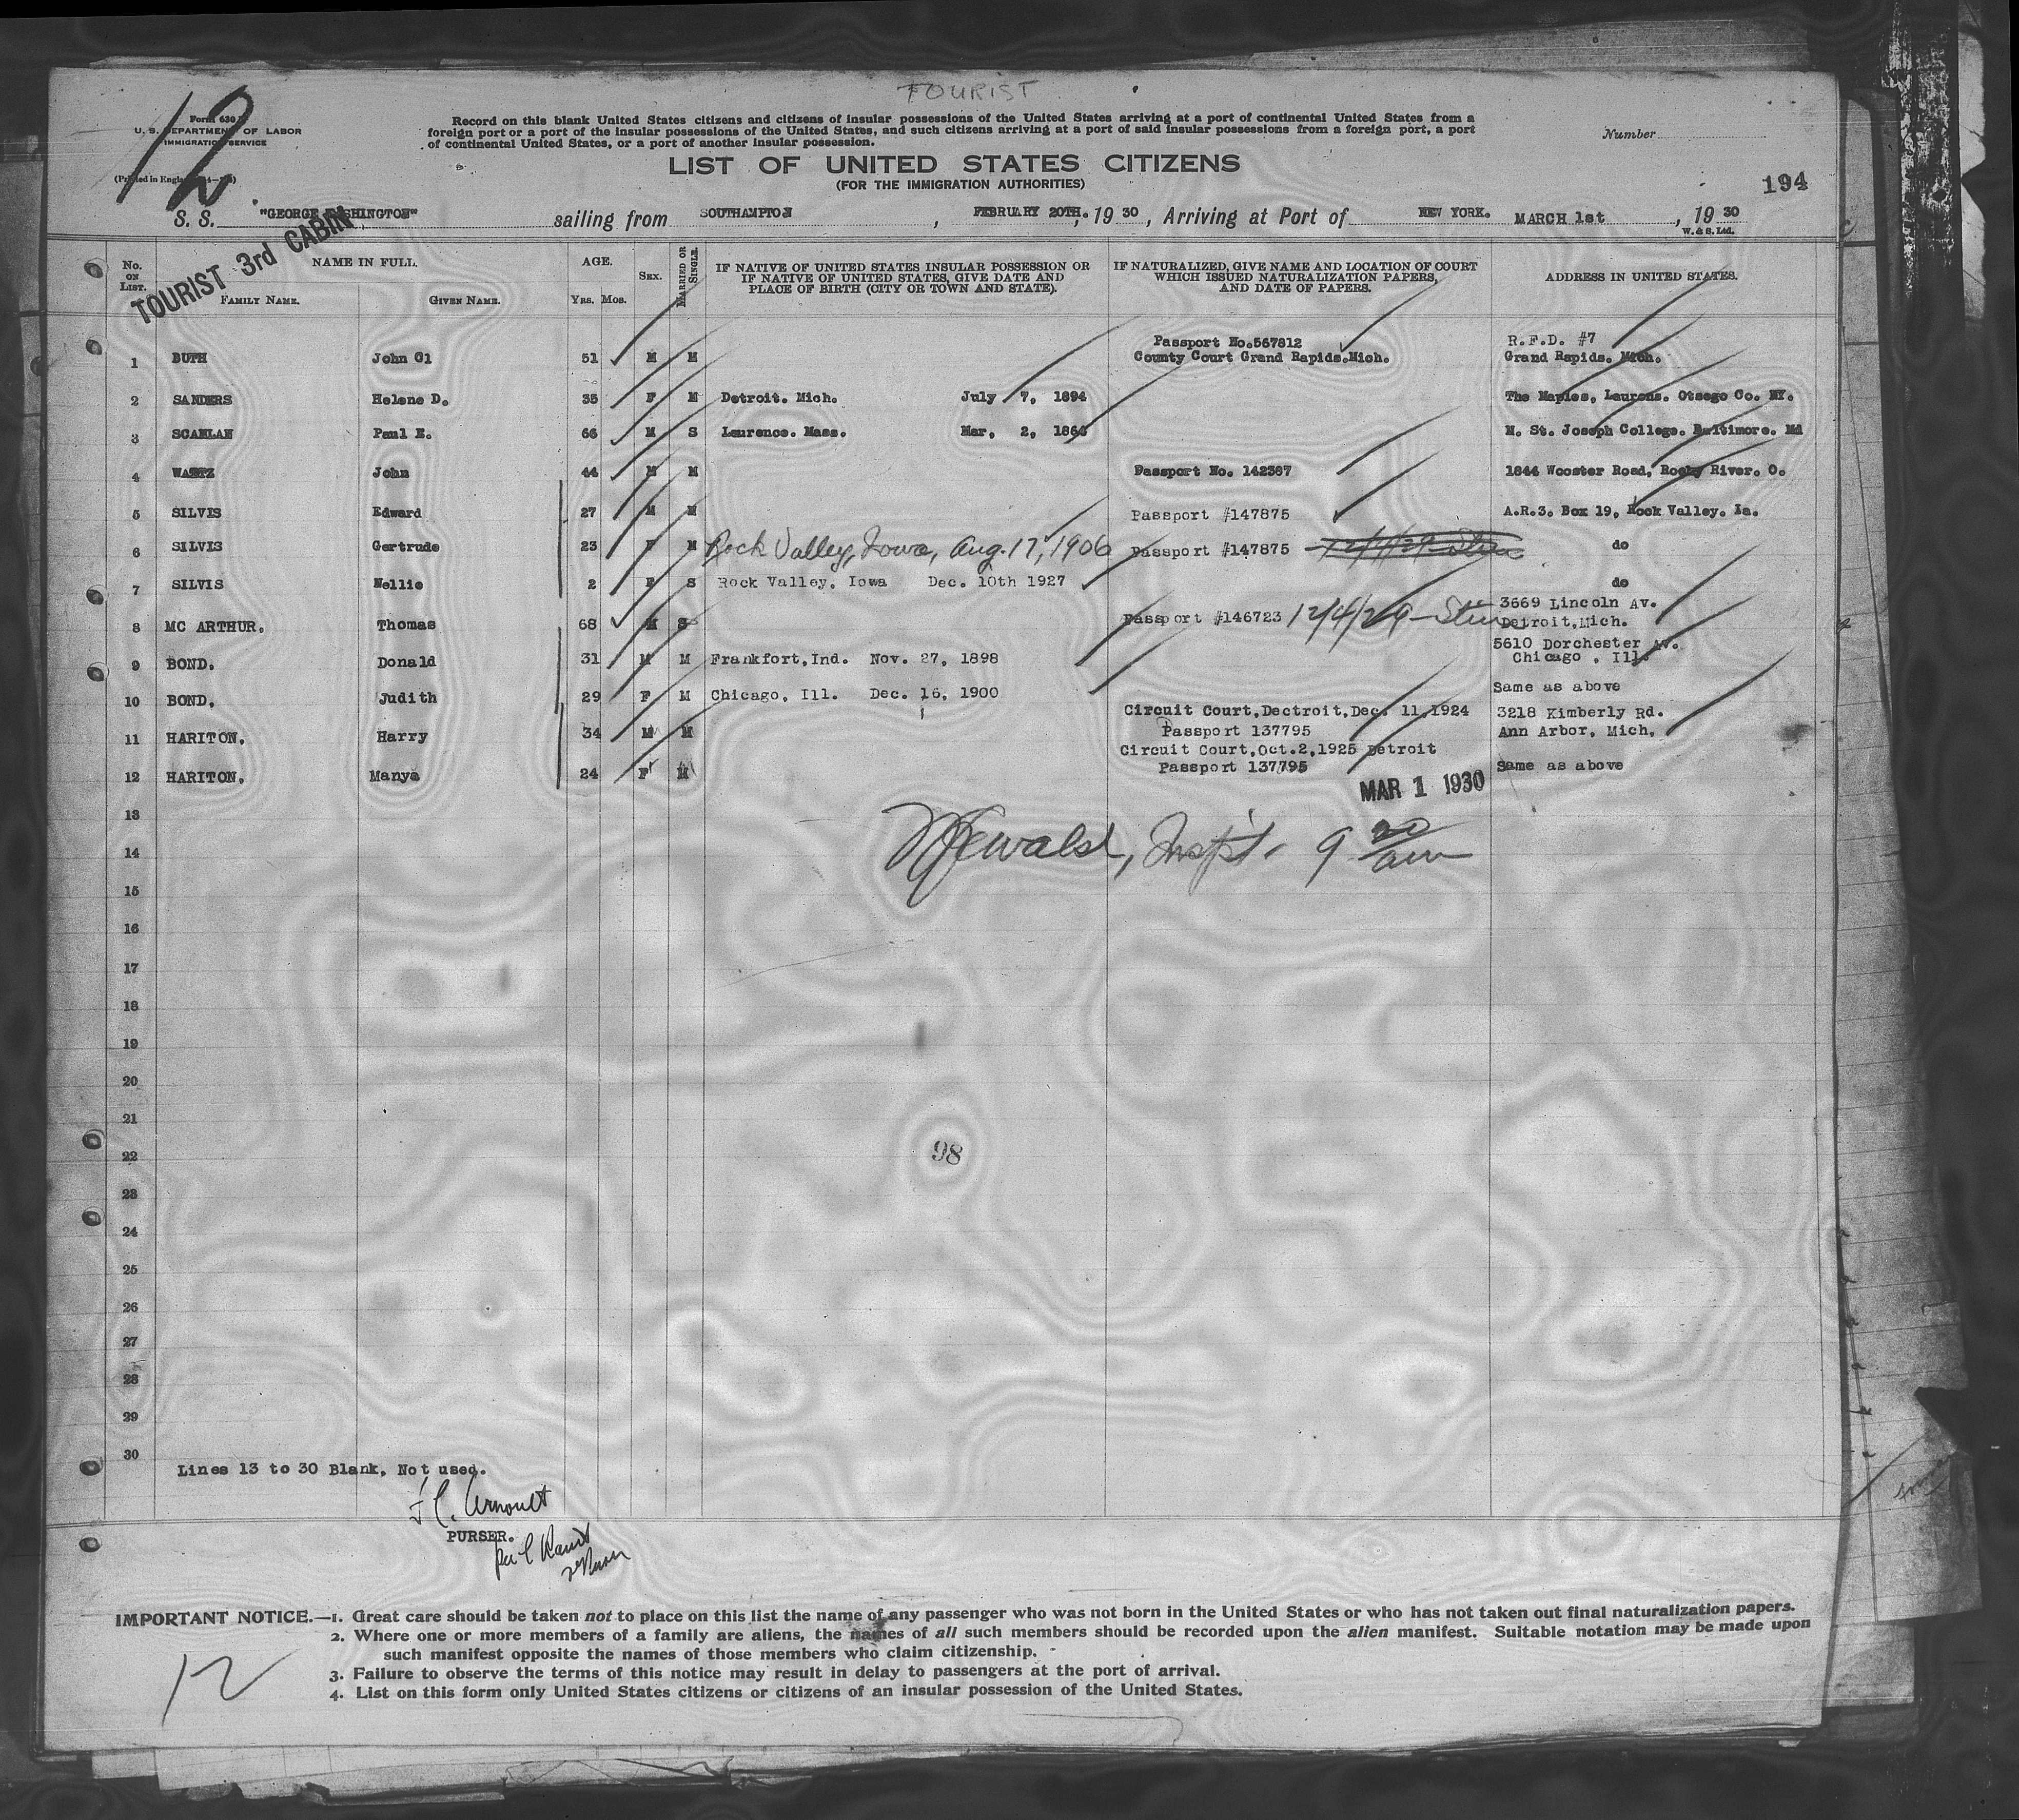 TOURIST
12
Form 630
U. S. DEPARTMENT OF LABOR
IMMIGRATION SERVICE
Record on this blank United States citizens and citizens of insular possessions of the United States arriving at a port of continental United States from a
foreign port or a port of the insular possessions of the United States, and such citizens arriving at a port of said insular possessions from a foreign port, a port
of continental United States, or a port of another insular possession.
Number
LIST OF UNITED STATES CITIZENS
(FOR THE IMMIGRATION AUTHORITIES)
194
S. S. "GEORGE WASHINGTON" sailing from SOUTHAMPTON, FEBRUARY 20TH. 19 30, Arriving at Port of NEW YORK. MARCH 1st, 19 30
W. & S. Ltd.
TOURIST 3rd CABIN
No. ON LIST. NAME IN FULL. FAMILY NAME. GIVEN NAME. AGE. YRS. MOS. SEX. MARRIED OR SINGLE. IF NATIVE OF UNITED STATES INSULAR POSSESSION OR IF NATIVE OF UNITED STATES, GIVE DATE AND PLACE OF BIRTH (CITY OR TOWN AND STATE). IF NATURALIZED, GIVE NAME AND LOCATION OF COURT WHICH ISSUED NATURALIZATION PAPERS, AND DATE OF PAPERS. ADDRESS IN UNITED STATES.
Passport No.567812 R.F.D. #7
1 BUTH John Gl 51 M M County Court Grand Rapids.Mich. Grand Rapids. Mich.
2 SANDERS Helene D. 35 F M Detroit. Mich. July 7, 1894 The Maples, Laurens. Otsego Co. NY.
3 SCANLAN Paul E. 66 M S Laurence. Mass. Mar, 2, 1864 N. St. Joseph College. Baltimore. Md
4 John 44 M M Passport No. 142387 1844 Wooster Road, Rocky River. O.
5 SILVIS Edward 27 M M Passport #147875 A.R.3. Box 19, Rock Valley. Ia.
6 SILVIS Gertrude 23 F M Rock Valley, Iowa, Aug. 17, 1906 Passport #147875 do
7 SILVIS Nellie 2 F S Rock Valley, Iowa Dec. 10th 1927 do
3669 Lincoln Av.
8 MC ARTHUR. Thomas 68 M S Passport #146723 12/4/29 Detroit,Mich.
5610 Dorchester Av.
9 BOND. Donald 31 M M Frankfort,Ind. Nov. 27, 1898 Chicago , Ill.
10 BOND. Judith 29 F M Chicago, Ill. Dec. 16, 1900 Same as above
Circuit Court,Dectroit,Dec. 11,1924 3218 Kimberly Rd.
11 HARITON. Harry 34 M M Passport 137795 Ann Arbor, Mich.
Circuit Court,Oct.2,1925 Detroit
12 HARITON. Manya 24 F M Passport 137795 Same as above
MAR 1 1930
13
14 Insp't. 9 20 am
15
16
17
18
19
20
21
22 98
23
24
25
26
27
28
29
30
Lines 13 to 30 Blank, Not used.
J C. Arnoult
PURSER.
IMPORTANT NOTICE.—1. Great care should be taken not to place on this list the name of any passenger who was not born in the United States or who has not taken out final naturalization papers.
2. Where one or more members of a family are aliens, the names of all such members should be recorded upon the alien manifest. Suitable notation may be made upon
such manifest opposite the names of those members who claim citizenship.
3. Failure to observe the terms of this notice may result in delay to passengers at the port of arrival.
4. List on this form only United States citizens or citizens of an insular possession of the United States.
12